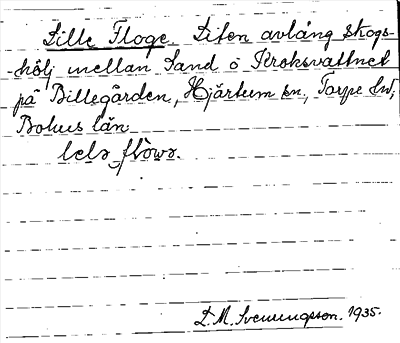 Lille Floge. Liten avlång skogs-
-hölj mellan Sand o Kroksvattnet
på Billegården, Hjärtum sn, Torpe hd,
Bohus län
lelə flowə.
D.M. Svenungsson. 1935.